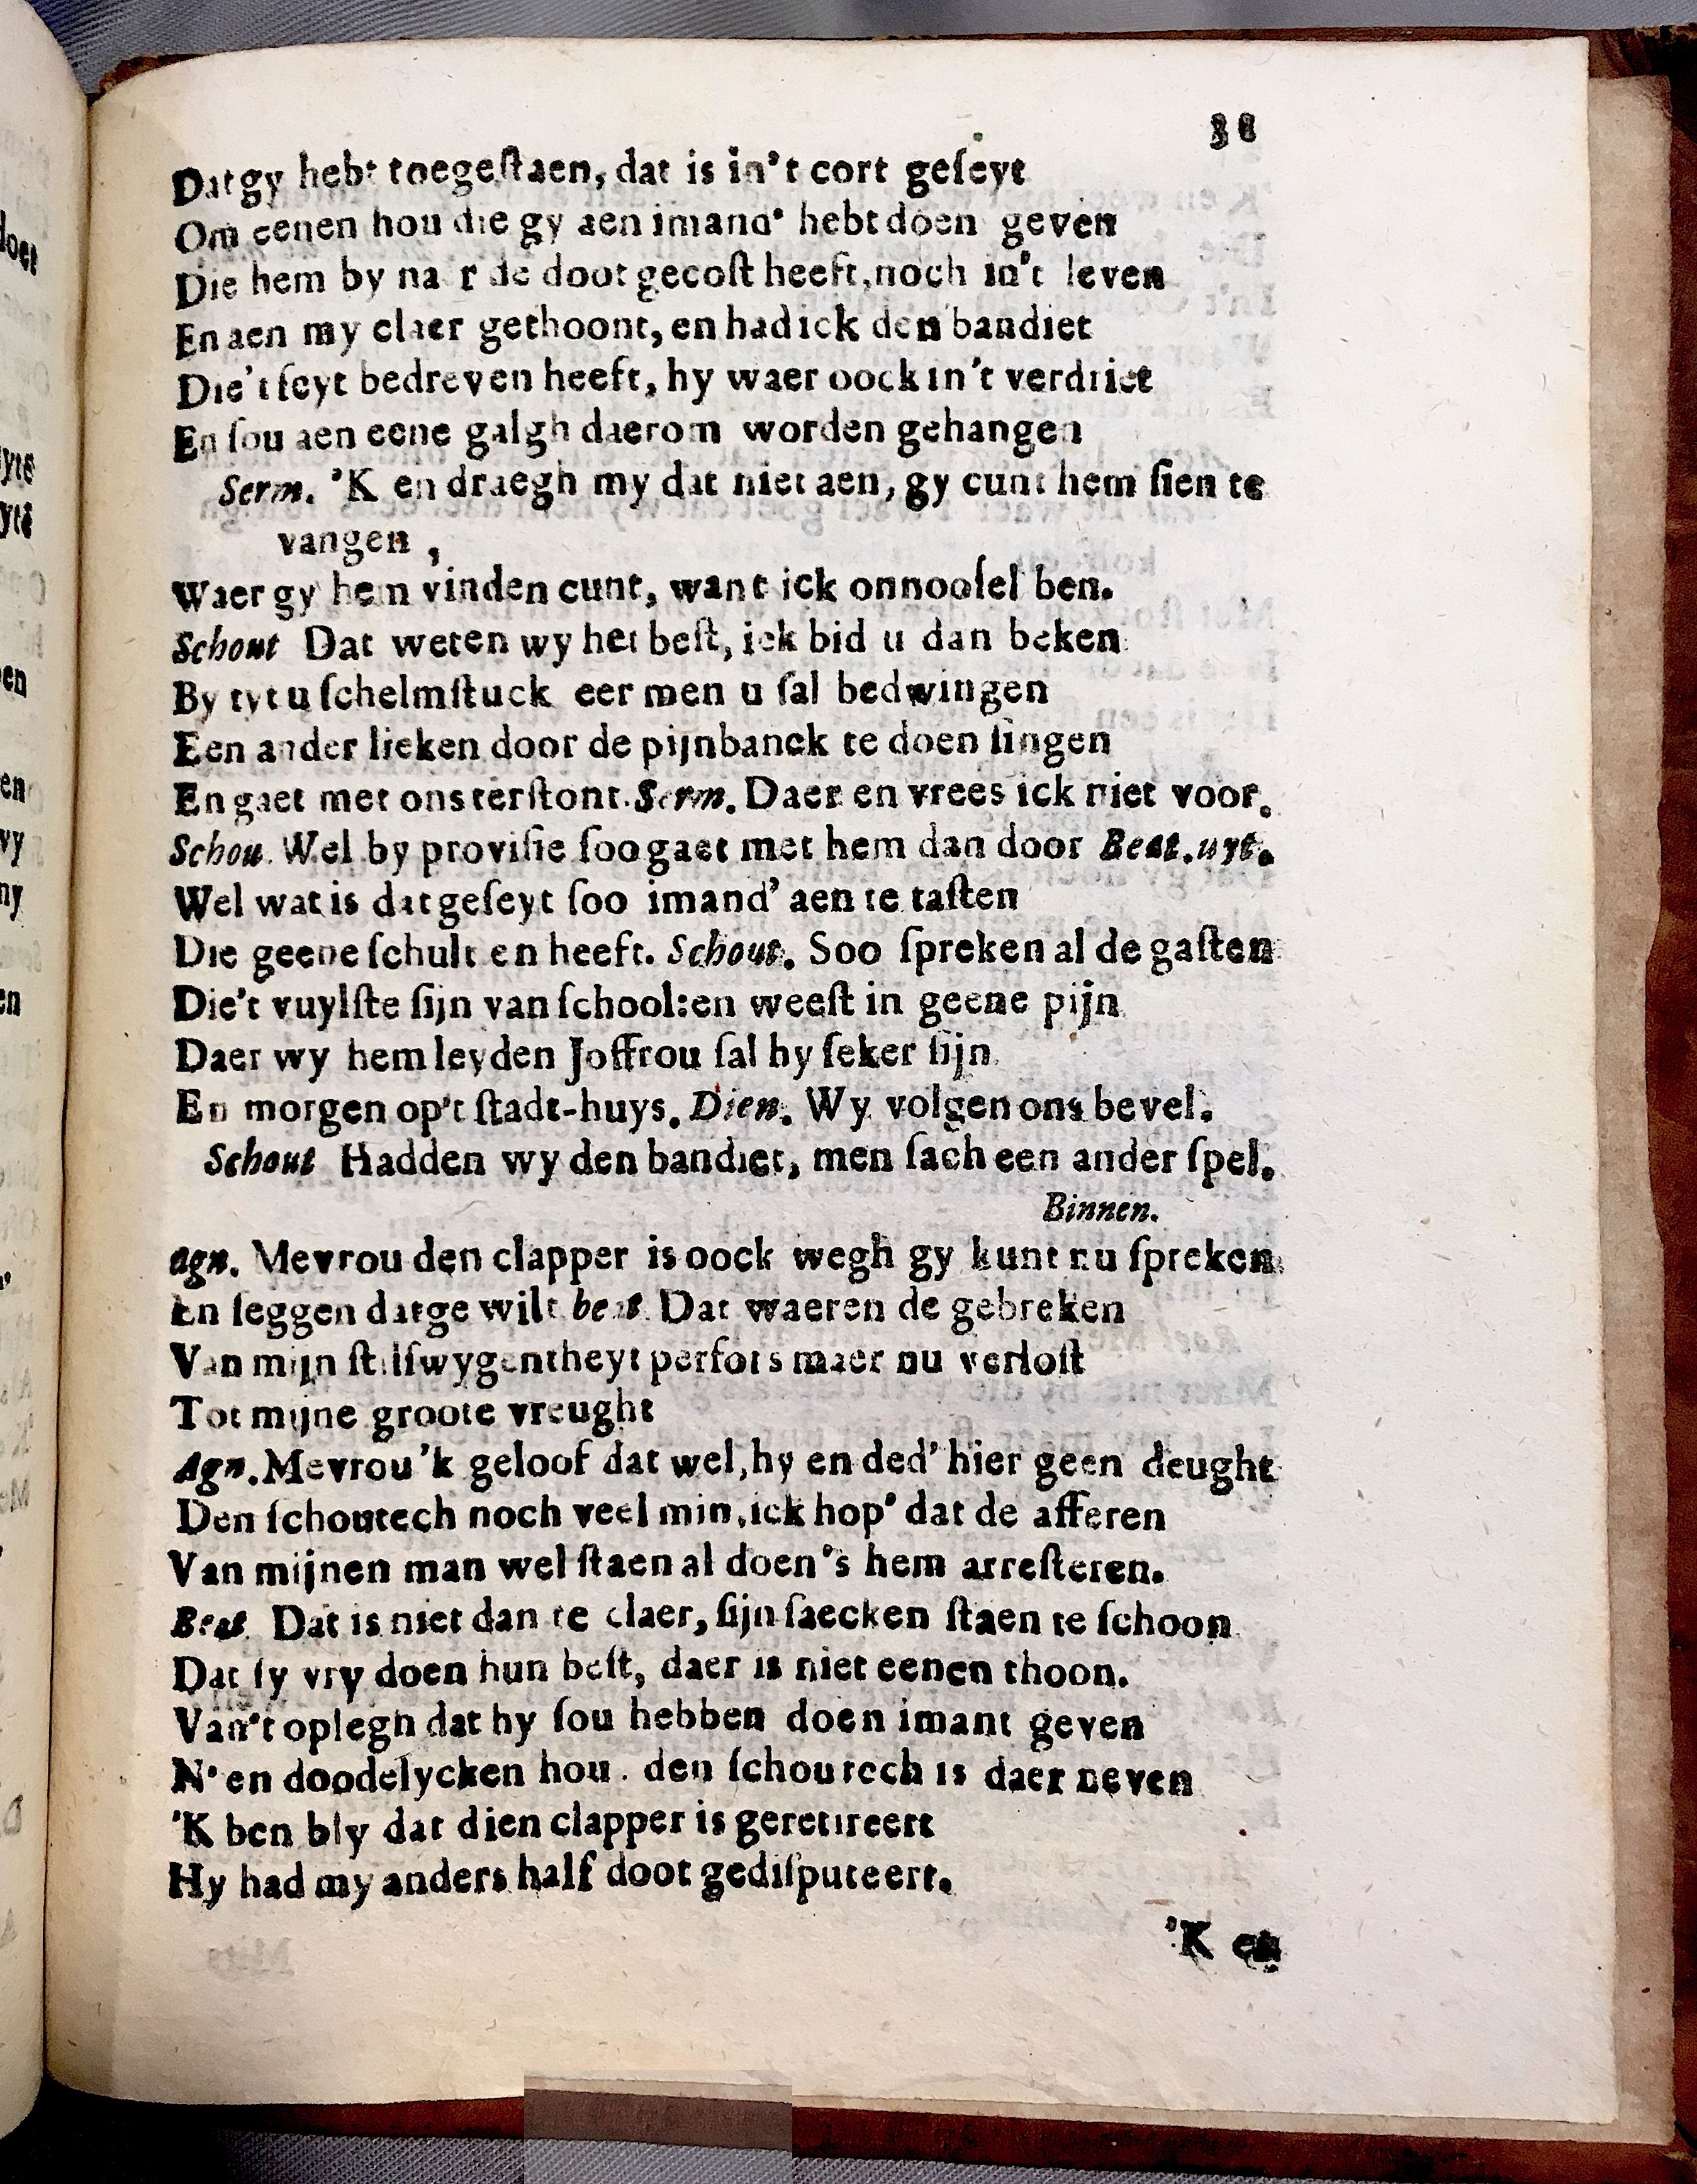 31
Dat gy hebt toegeſtaen, dat is in't cort geſeyt
Om eenen hou die gy aen imand' hebt doen geven
Die hem by na r de doot gecoſt heeft, noch in't leven
En aen my claer gethoont, en had ick den bandiet
Die't ſeyt bedreven heeft, hy waer oock in't verdriet
En ſou aen eene galgh daerom worden gehangen
Serm. 'K en draegh my dat niet aen, gy cunt hem ſien te
vangen,
Waer gy hem vinden cunt, want ick onnooſel ben.
Schout Dat weten wy het beſt, ick bid u dan beken
By tyt u ſchelmſtuck eer men u ſal bedwingen
Een ander lieken door de pijnbanck te doen ſingen
En gaet met ons terſtont. Serm. Daer en vrees ick niet voor.
Schou. Wel by proviſie ſoo gaet met hem dan door Beat. uyt.
Wel wat is dat geſeyt ſoo imand' aen te taſten
Die geene ſchult en heeft. Schout. Soo ſpreken al de gaſten
Die't vuylſte ſijn van ſchool: en weeſt in geene pijn
Daer wy hem leyden Joffrou ſal hy ſeker ſijn
En morgen op't ſtadt-huys. Dien. Wy volgen ons bevel.
Schout Hadden wy den bandiet, men ſach een ander ſpel.
Binnen.
agn. Mevrou den clapper is oock wegh gy kunt nu ſpreken
En ſeggen datge wilt beat Dat waeren de gebreken
Van mijn ſtilſwygentheyt perfors maer nu verloſt
Tot mijne groote vreught
Agn. Mevrou 'k geloof dat wel, hy en ded' hier geen deught
Den ſchoutech noch veel min, ick hop' dat de afferen
Van mijnen man wel ſtaen al doen's hem arreſteren.
Beat Dat is niet dan te claer, ſijn ſaecken ſtaen te ſchoon
Dat ſy vry doen hun beſt, daer is niet eenen thoon.
Van't oplegh dat hy ſou hebben doen imant geven
N'en doodelycken hou. den ſchoutech is daer neven
'K ben bly dat dien clapper is geretireert
Hy had my anders half doot gediſputeert.
'K en